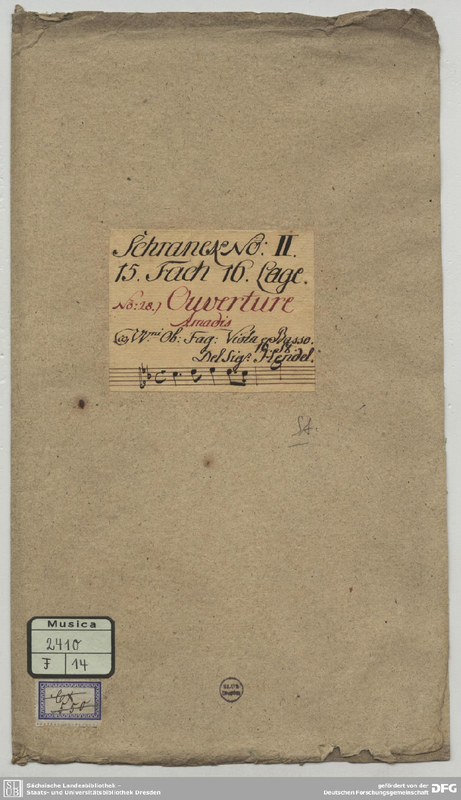 Schranck No: II.
15. Fach 16. Lage.
No: 28.) Ouverture
Amadis
VVni Ob: Fag: Viola Basso.
Del Sigr. Hendel.
St.
Musica
2410
F 14
Sächsische Landesbibliothek –
Staats- und Universitätsbibliothek Dresden
gefördert von der
Deutschen Forschungsgemeinschaft
DFG